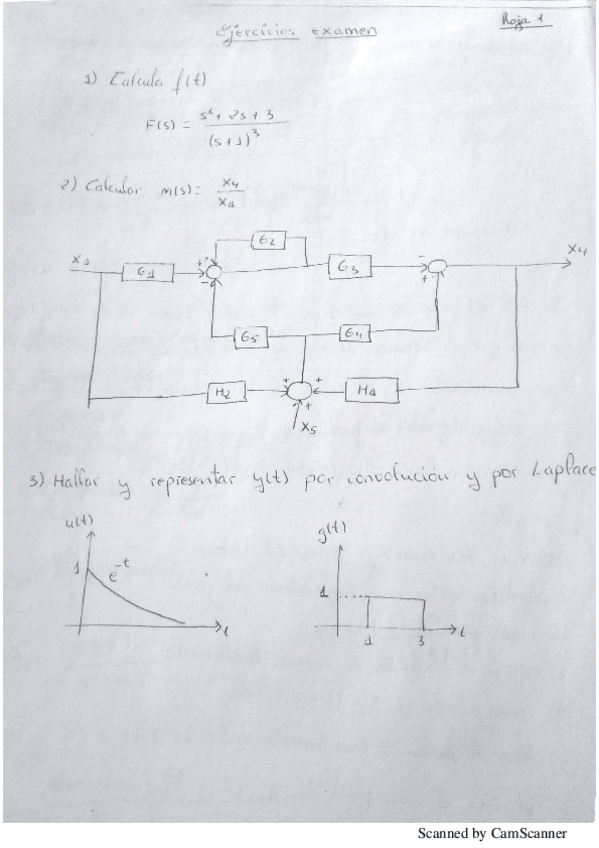 Hoja 1
Ejercicios examen
1) Calcula f(t)
F(s) = s² + 2s + 3 / (s+1)³
2) Calcular M(s) = X4 / X1
X1 G1 + + G2 G3 - X4
- +
G5 G4
H2 + + H1
+
X5
3) Hallar y representar y(t) por convolución y por Laplace
u(t) g(t)
1 e^-t 1
t 1 3 t
Scanned by CamScanner